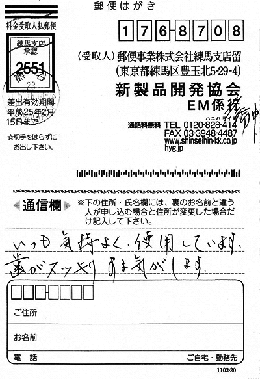 郵便はがき
料金受取人払郵便
練馬支店
承認
2551
差出有効期間
平成25年2月
15日まで
☆切手をはらずに
お出し下さい。
1768708
(受取人) 郵便事業株式会社練馬支店留
(東京都練馬区豊玉北5-29-4)
新製品開発協会
EM係 行
通話料無料 TEL 0120-823-414
FAX 03-3948-4487
www.shinseihin.kk.co.jp
通信欄
※下の住所・氏名欄には、裏のお名前と違う
人が申し込の場合と住所が変更した場合だ
け記入して下さい。
いつも気持よく使用しています。
歯がスッキリする気がします
ご住所
お名前
電話
ご自宅・勤務先